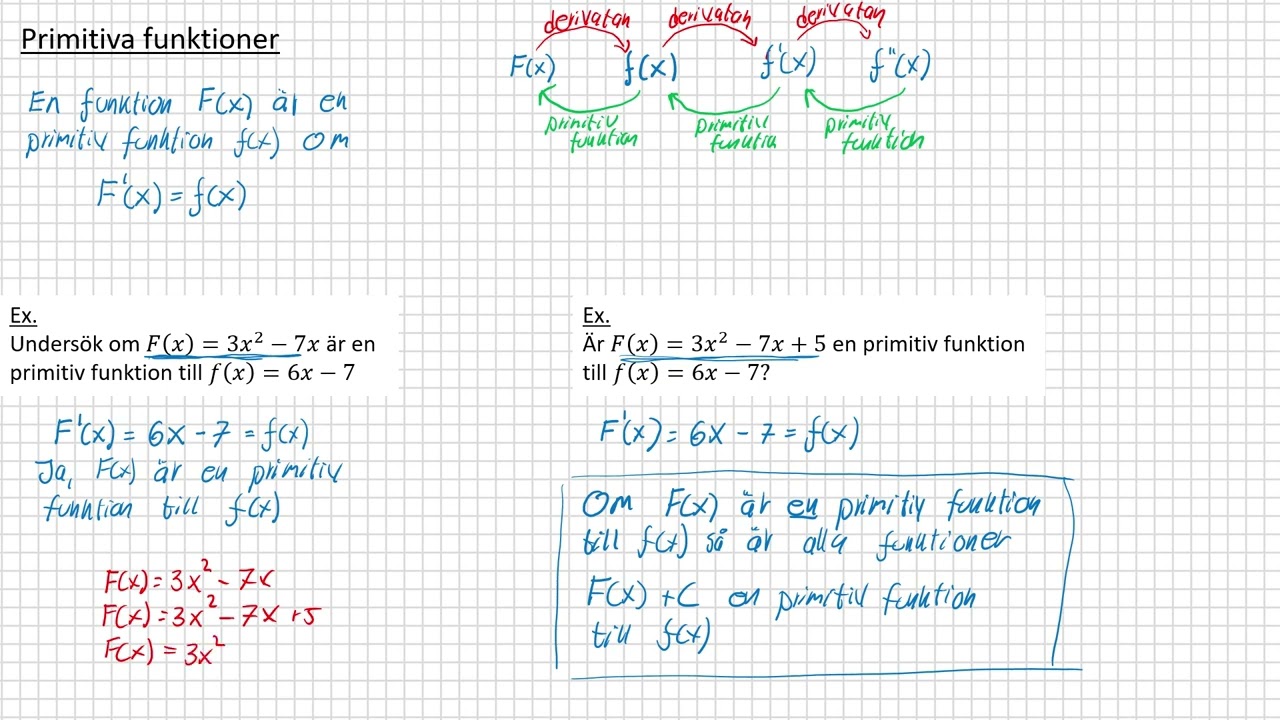 Primitiva funktioner
En funktion F(x) är en
primitiv funktion f(x) om
F'(x) = f(x)
derivatan derivatan derivatan
F(x) f(x) f'(x) f''(x)
primitiv primitiv primitiv
funktion funktion funktion
Ex.
Undersök om F(x) = 3x² − 7x är en
primitiv funktion till f(x) = 6x − 7
F'(x) = 6x − 7 = f(x)
Ja, F(x) är en primitiv
funktion till f(x)
F(x) = 3x² − 7x
F(x) = 3x² − 7x + 5
F(x) = 3x²
Ex.
Är F(x) = 3x² − 7x + 5 en primitiv funktion
till f(x) = 6x − 7?
F'(x) = 6x − 7 = f(x)
Om F(x) är en primitiv funktion
till f(x) så är alla funktioner
F(x) + C en primitiv funktion
till f(x)